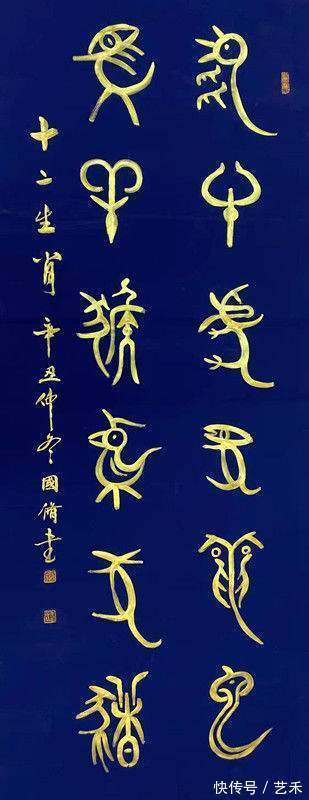 鼠牛虎兔龍蛇
馬羊猴雞犬猪
十二生肖 辛丑仲冬國脩書
快传号 / 艺禾